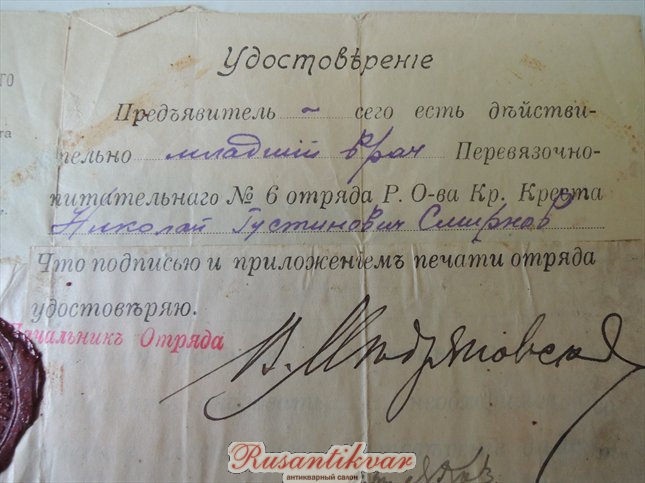 Удостовѣренiе
го
Предъявитель ~ сего есть дѣйстви-
та
тельно младшiй врач Перевязочно-
питательнаго № 6 отряда Р. О-ва Кр. Креста
Николай Густинович Смирнов
Что подписью и приложенiемъ печати отряда
удостовѣряю.
Начальникъ Отряда
Rusantikvar
антикварный салон